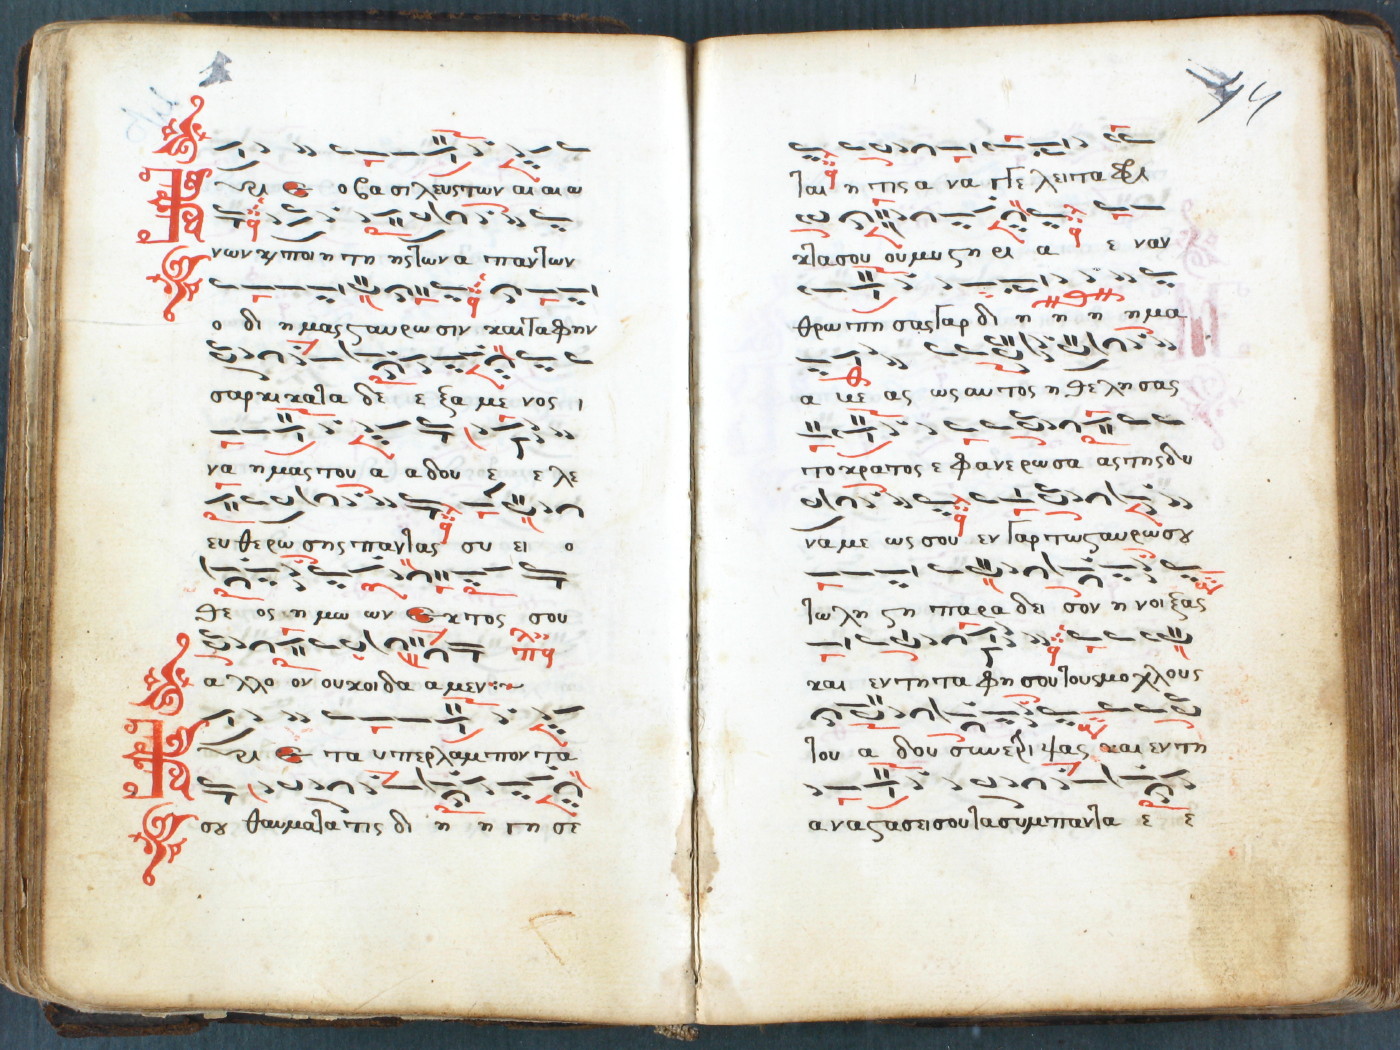 Κυρι ε ο βα σι λευς των αι αι ω
νων κ ποι η τη ης των α παντων
ο δι η μας σταυρω σιν και ταφην
σαρκι κατα δε ε ξα με νος ι
να η μας του α α δου ε ε λε
ευ θε ρω σης παντας συ ει ο
θε ος η μω ων ε κτος σου
α λλο ον ουκ οι δα α μεν
Κυρι ε τα υπερλαμποντα
σου θαυματα τις δι η η γη σε
ται η τις α να γγε λει τα φρι
κτα σου ου μυστη ρι α ε ναν
θρωπη σας γαρ δι η η η η μα
α με ας ως αυτος η θε λη σας
το κρατος ε φανερωσα ας της δυ
ναμε ως σου εν γαρ τω σταυρω σου
τω λη στη παρα δει σον η νοι ξας
και εν τη τα φη σου τους μο χλους
του α δου συνετρι ψας και εν τη
αναστασει σου τα συμπαντα ε ε